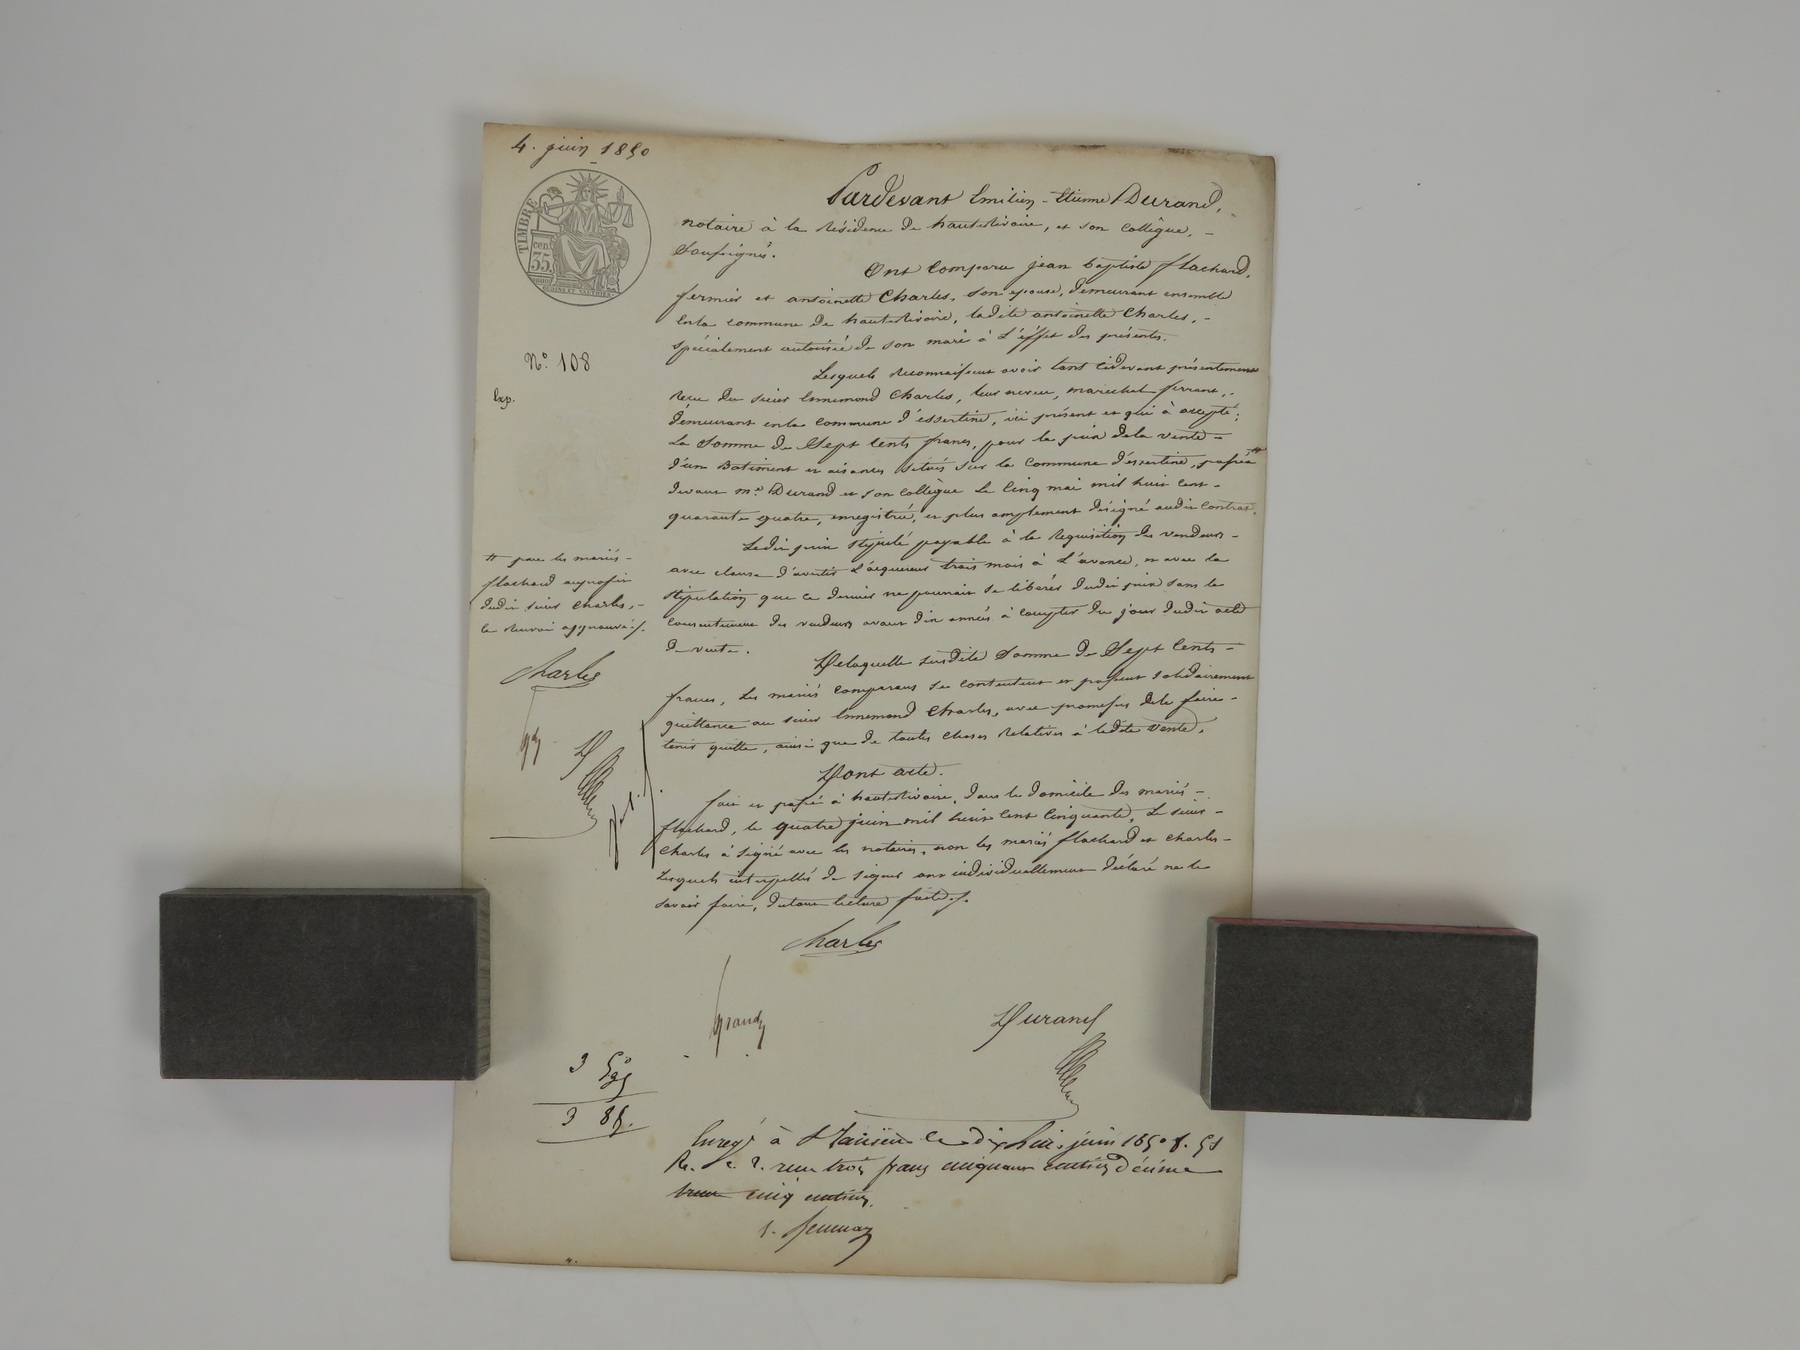 4. juin 1850
TIMBRE
cen.
35.
Pardevant Emilien-Etienne Durand,
notaire à la résidence de hauterivoire, et son collègue, -
soussignés.
Ont comparu jean baptiste flachard,
fermier et antoinette Charles, son épouse, demeurant ensemble
enla commune de hauterivoire, ladite antoinette Charles, -
spécialement autorisée de son mari à l'éffet des présentes.
N.° 108
Exp.
Lesquels reconnaissent avoir tant cidevant présentement
recu du sieur Ennemond Charles, leur neveu, marechal ferrant, -
demeurant enla commune d'essertine, ici présent et qui à accepté;
La Somme de Sept Cents francs, pour le prix dela vente -
d'un Batiment et aisances situés sur la commune d'essertine, passée #
devant m.e Durand et son collègue le cinq mai mil huit cent -
quarante quatre, enregistrée, et plus amplement désigné audit contrat.
Ledit prix stipulé payable à la requisition des vendeurs -
avec clause d'avertir l'acquereur trois mois à l'avance, et avec la
stipulation que ce dernier ne pourrait se libérer dudit prix sans le
consentement des vendeurs avant dix années à compter du jour dudit acte
de vente.
# par les mariés -
flachard auprofit
dudit sieur Charles, -
le renvoi approuvé ./.
Charles
De laquelle susdite Somme de Sept Cents -
francs, les mariés comparans se contentent et passent solidairement
quittance au sieur Ennemond Charles, avec promesse dele faire -
tenir quitte, ainsi que de toutes choses relatives à ladite vente.
Dont acte.
fait et passé à hauterivoire, dans le domicile des mariés -
flachard, le quatre juin mil huit cent cinquante, Le sieur -
Charles à signé avec les notaires, non les mariés flachard et Charles -
Lesquels interpellés de signer ont individuellement déclaré ne le
savoir faire, detout lecture faite ./.
Charles
Durand
3 50
35
3 85.
Enregé à le dix huit juin 1850 f. 51
R. c. 2. recu trois francs cinquante centimes décime
trente cinq centimes.